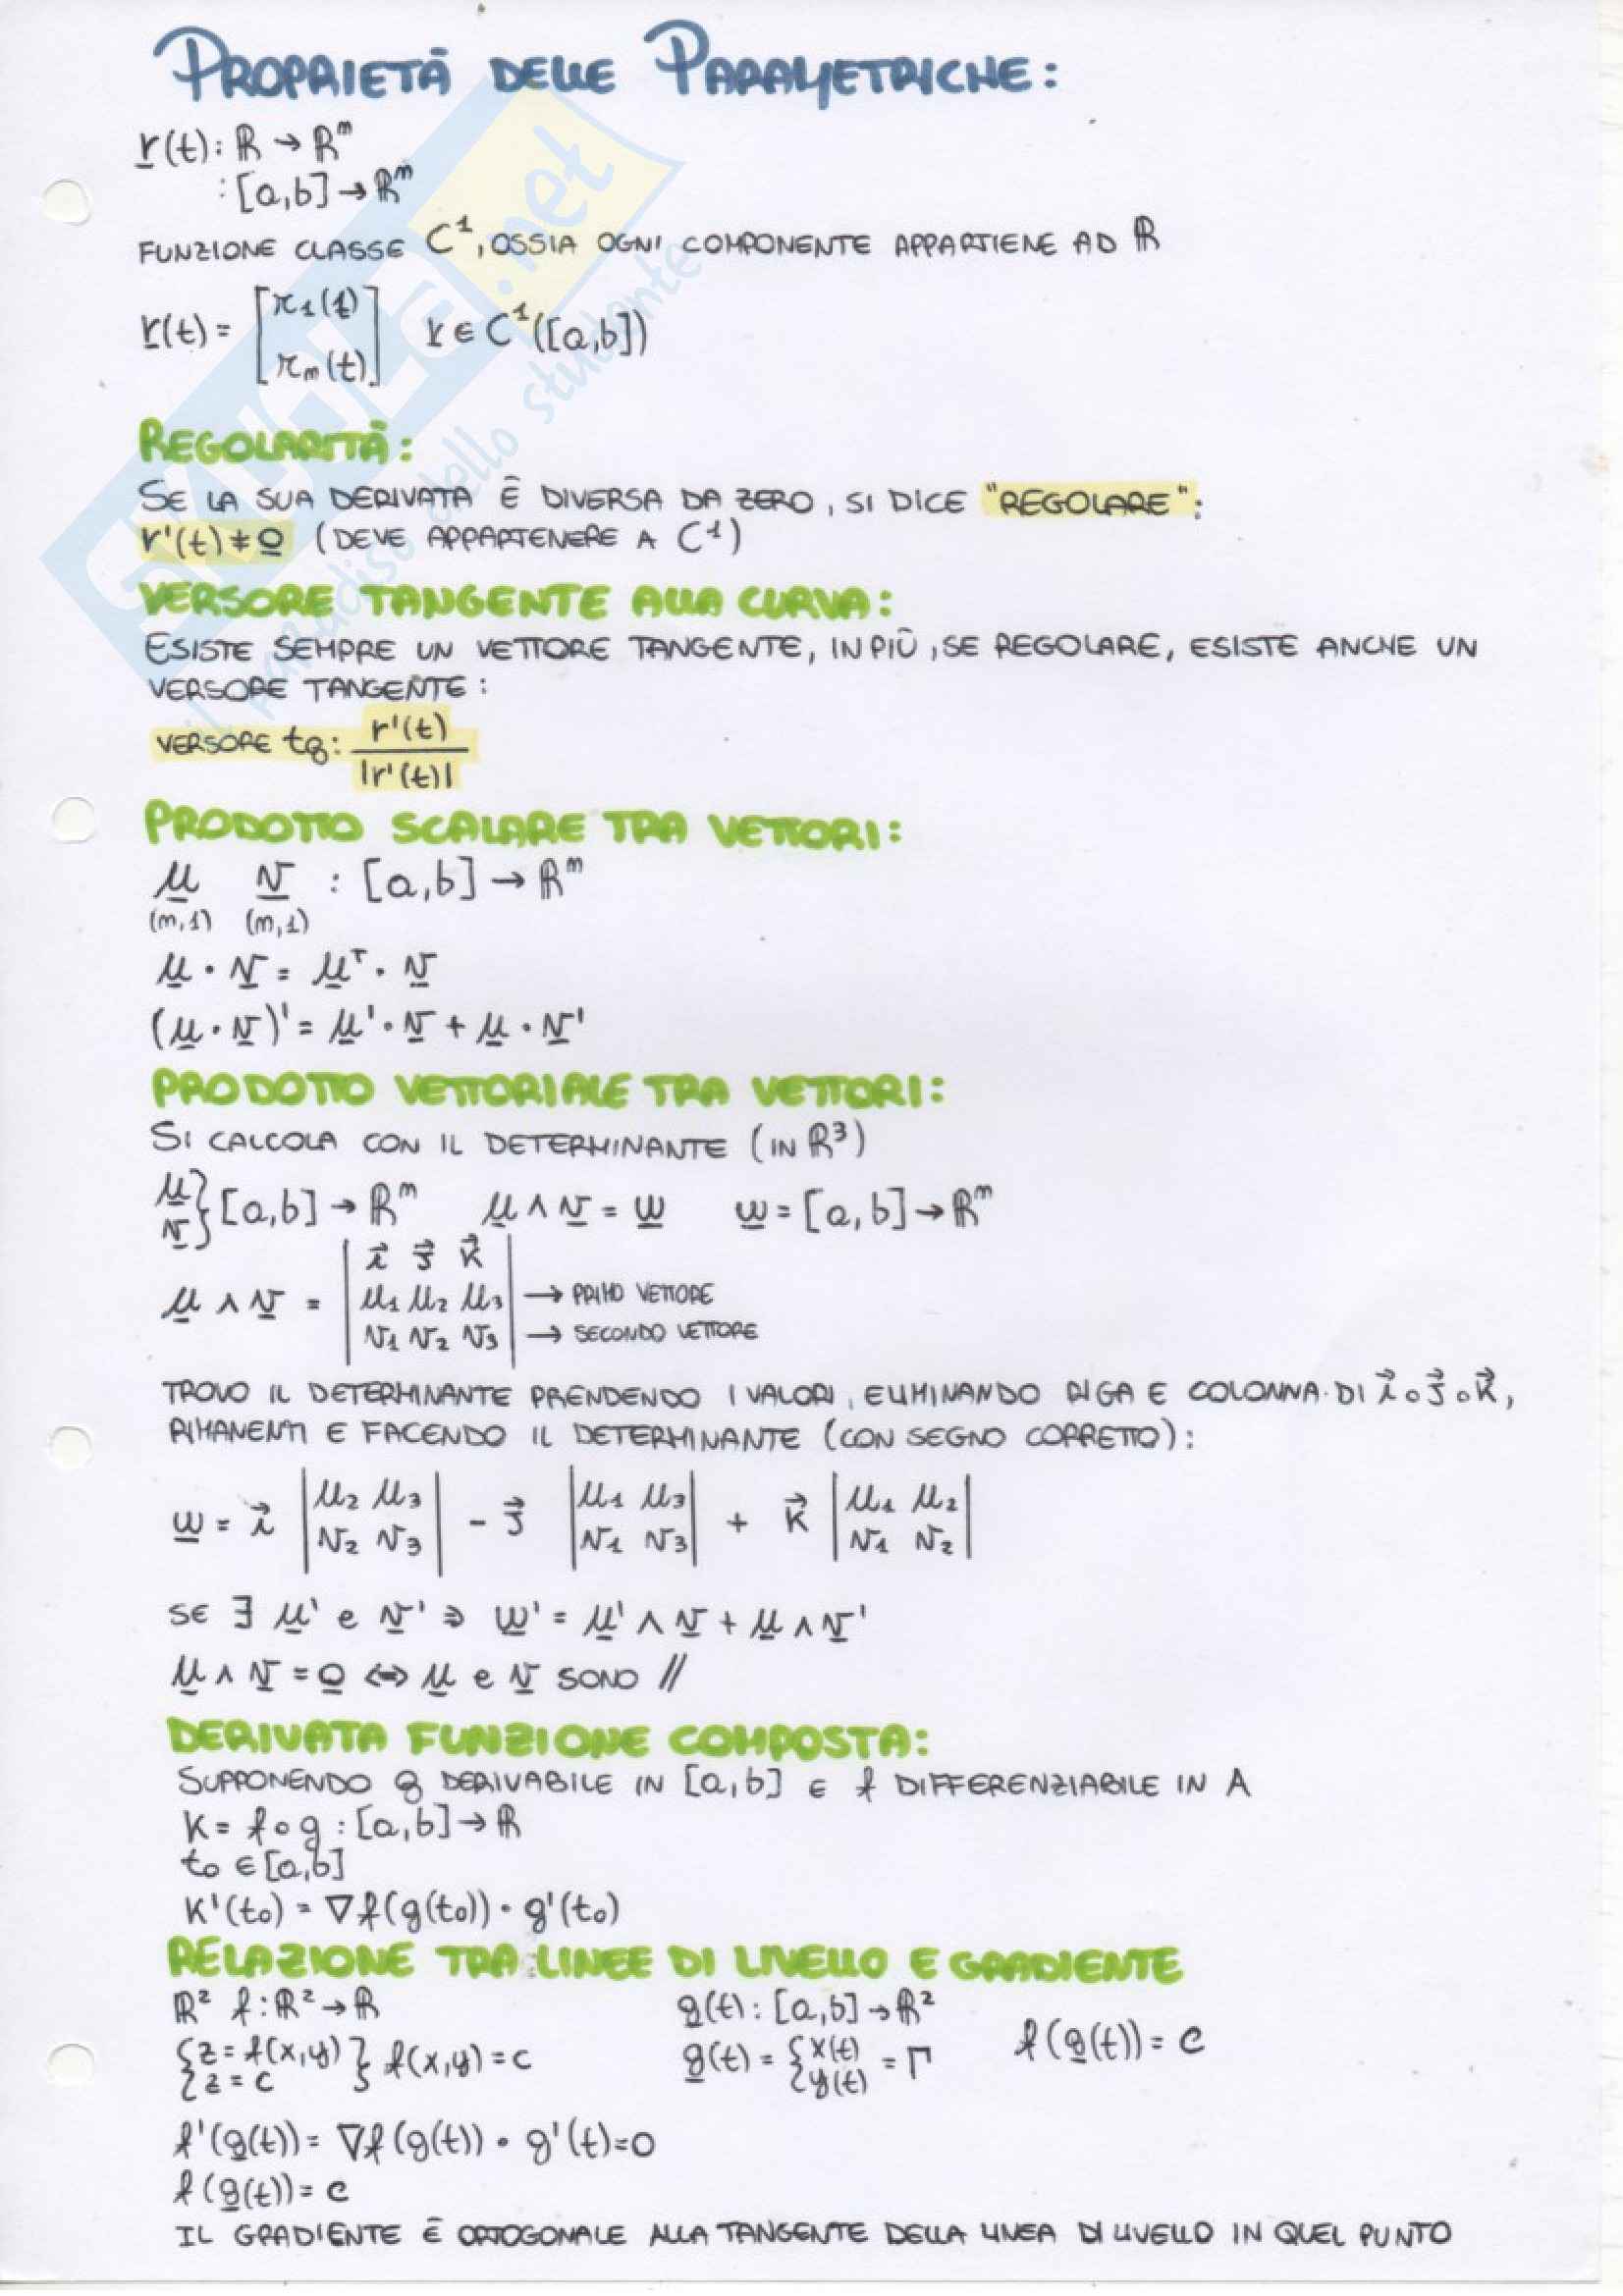 PROPRIETÀ DELLE PARAMETRICHE:
r(t): ℝ → ℝᵐ
: [a,b] → ℝᵐ
FUNZIONE CLASSE C¹, OSSIA OGNI COMPONENTE APPARTIENE AD ℝ
r(t) = [r₁(t) rₘ(t)] r ∈ C¹([a,b])
REGOLARITÀ:
SE LA SUA DERIVATA È DIVERSA DA ZERO, SI DICE "REGOLARE":
r'(t) ≠ 0 (DEVE APPARTENERE A C¹)
VERSORE TANGENTE ALLA CURVA:
ESISTE SEMPRE UN VETTORE TANGENTE, IN PIÙ, SE REGOLARE, ESISTE ANCHE UN
VERSORE TANGENTE:
VERSORE tg: r'(t) / |r'(t)|
PRODOTTO SCALARE TRA VETTORI:
u v : [a,b] → ℝᵐ
(m,1) (m,1)
u · v = uᵀ · v
(u · v)' = u' · v + u · v'
PRODOTTO VETTORIALE TRA VETTORI:
SI CALCOLA CON IL DETERMINANTE (IN ℝ³)
u v } [a,b] → ℝᵐ u ∧ v = w w = [a,b] → ℝᵐ
i⃗ j⃗ k⃗
u ∧ v = | u₁ u₂ u₃ | → PRIMO VETTORE
v₁ v₂ v₃ → SECONDO VETTORE
TROVO IL DETERMINANTE PRENDENDO I VALORI, ELIMINANDO RIGA E COLONNA DI i⃗ o j⃗ o k⃗,
RIMANENTI E FACENDO IL DETERMINANTE (CON SEGNO CORRETTO):
w = i⃗ |u₂ u₃ / v₂ v₃| - j⃗ |u₁ u₃ / v₁ v₃| + k⃗ |u₁ u₂ / v₁ v₂|
SE ∃ u' e v' ⇒ w' = u' ∧ v + u ∧ v'
u ∧ v = 0 ⇔ u e v SONO //
DERIVATA FUNZIONE COMPOSTA:
SUPPONENDO g DERIVABILE IN [a,b] E f DIFFERENZIABILE IN A
K = f ∘ g : [a,b] → ℝ
t₀ ∈ [a,b]
K'(t₀) = ∇f(g(t₀)) · g'(t₀)
RELAZIONE TRA LINEE DI LIVELLO E GRADIENTE
ℝ² f: ℝ² → ℝ g(t): [a,b] → ℝ²
{z = f(x,y) z = c} f(x,y) = c g(t) = {x(t) y(t) = Γ f(g(t)) = c
f'(g(t)) = ∇f(g(t)) · g'(t) = 0
f(g(t)) = c
IL GRADIENTE È ORTOGONALE ALLA TANGENTE DELLA LINEA DI LIVELLO IN QUEL PUNTO
SKUOLA.net
il paradiso dello studente